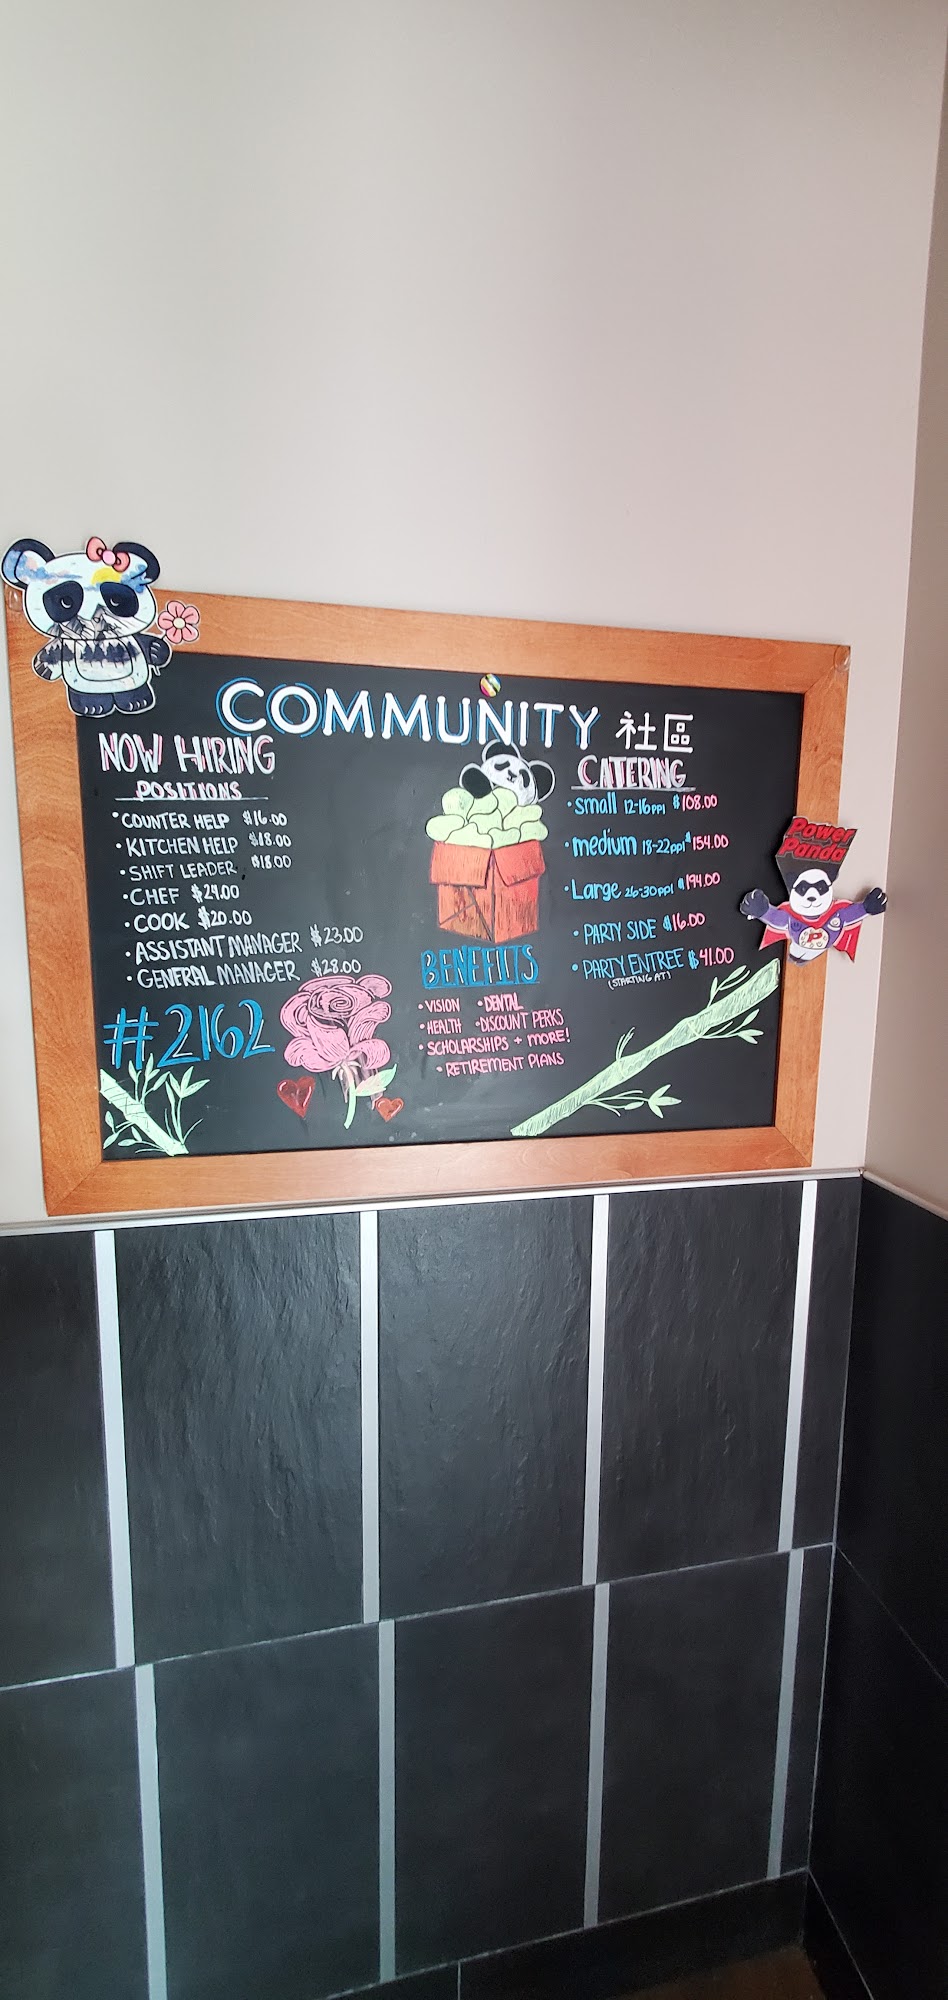 COMMUNITY 社區
NOW HIRING
POSITIONS
• COUNTER HELP $16.00
• KITCHEN HELP $18.00
• SHIFT LEADER $18.00
• CHEF $24.00
• COOK $20.00
• ASSISTANT MANAGER $23.00
• GENERAL MANAGER $28.00
#2162
BENEFITS
• VISION • DENTAL
• HEALTH • DISCOUNT PERKS
• SCHOLARSHIPS + MORE!
• RETIREMENT PLANS
CATERING
• small 12-16ppl $108.00
• medium 18-22ppl $154.00
• Large 26-30ppl $194.00
• PARTY SIDE $16.00
• PARTY ENTREE $41.00
(STARTING AT)
Power
Panda
P